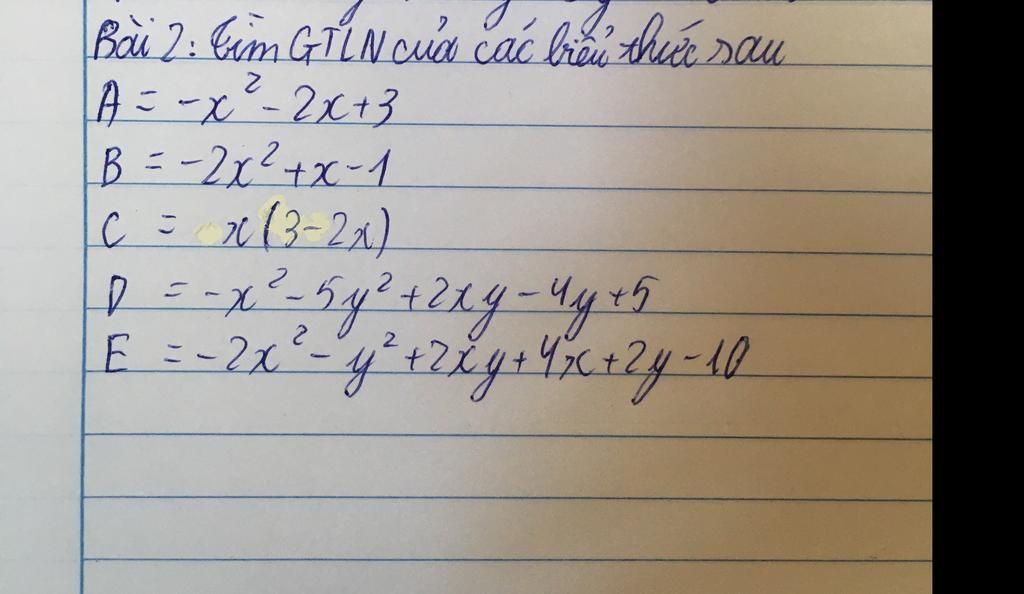 Bài 2: tìm GTLN của các biểu thức sau
A = -x² - 2x + 3
B = -2x² + x - 1
C = x(3 - 2x)
D = -x² - 5y² + 2xy - 4y + 5
E = -2x² - y² + 2xy + 4x + 2y - 10